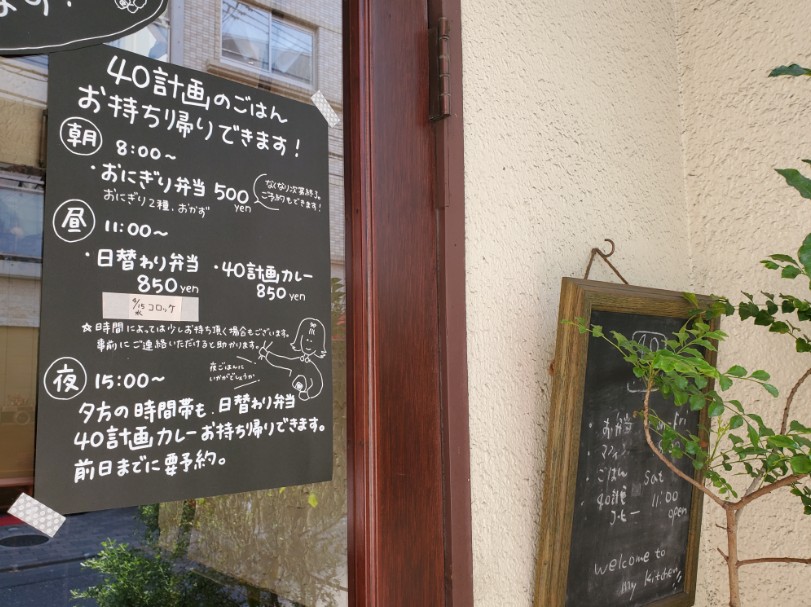 ます!
40計画のごはん
お持ち帰りできます!
朝 8:00〜
・おにぎり弁当 500yen
おにぎり2種、おかず
なくなり次第終了。
ご予約もできます!
昼 11:00〜
・日替わり弁当 850yen
・40計画カレー 850yen
4/15 水 コロッケ
☆時間によっては少しお持ち頂く場合もございます。
事前にご連絡いただけると助かります。
夜ごはんに
いかがでしょうか
夜 15:00〜
夕方の時間帯も、日替わり弁当
40計画カレーお持ち帰りできます。
前日までに要予約。
・お弁当 Fri
・ごはん Sat
・40計画 11:00
コーヒー open
welcome to
my kitchen!!